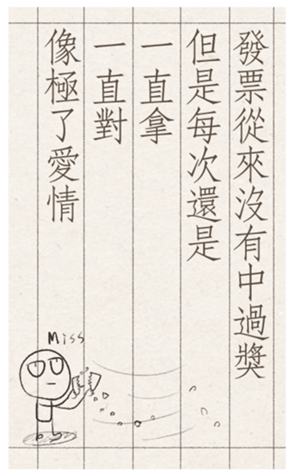 發票從來沒有中過獎
但是每次還是
一直拿
一直對
像極了愛情
Miss